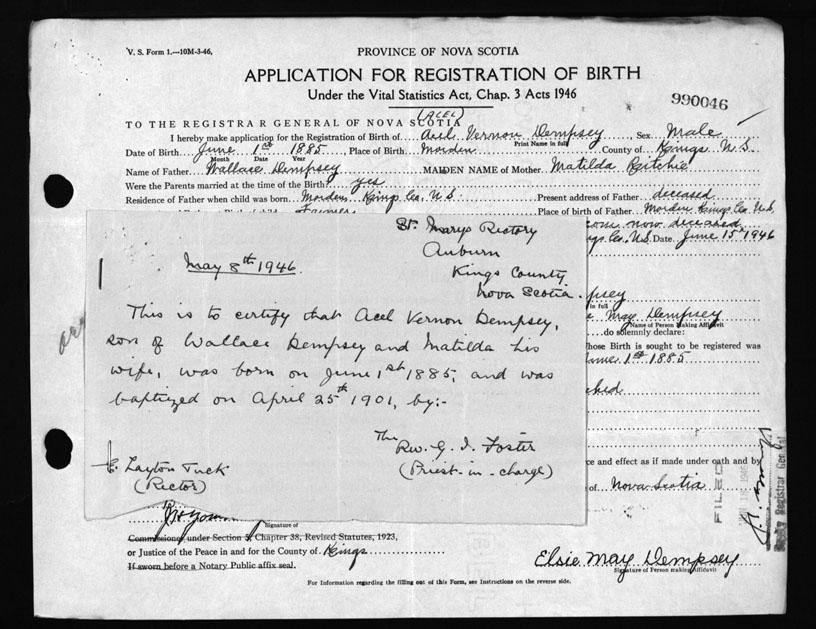 V. S. Form 1.—10M-3-46,
PROVINCE OF NOVA SCOTIA
APPLICATION FOR REGISTRATION OF BIRTH
Under the Vital Statistics Act, Chap. 3 Acts 1946
990046
(ACEL)
TO THE REGISTRAR GENERAL OF NOVA SCOTIA
I hereby make application for the Registration of Birth of Acel Vernon Dempsey, Sex Male
Print Name in full
Date of Birth June 1st 1885, Place of Birth Morden County of Kings N.S.
Month Date Year
Name of Father Wallace Dempsey MAIDEN NAME of Mother Matilda Ritchie
Were the Parents married at the time of the Birth? yes
Residence of Father when child was born Morden Kings Co. N.S. Present address of Father deceased
Farmer Place of birth of Father Morden Kings Co. N.S.
now deceased
Co. N.S. Date June 15th 1946
St. Marys Rectory
Auburn
Kings County
Nova Scotia.
May 8th 1946.
This is to certify that Acel Vernon Dempsey,
son of Wallace Dempsey and Matilda his
wife, was born on June 1st 1885, and was
baptized on April 25th 1901, by:-
The Rev. G. I. Foster
(Priest-in-charge)
E. Layton Tuck
(Rector)
in full
May Dempsey
Name of Person Making Affidavit
do solemnly declare:
whose Birth is sought to be registered was
June 1st 1885
ce and effect as if made under oath and by
of Nova Scotia
FILED
Deputy Registrar General
Signature of
Commissioner under Section 5, Chapter 38, Revised Statutes, 1923,
or Justice of the Peace in and for the County of Kings
If sworn before a Notary Public affix seal.
Elsie May Dempsey
Signature of Person making Affidavit
For Information regarding the filling out of this Form, see Instructions on the reverse side.